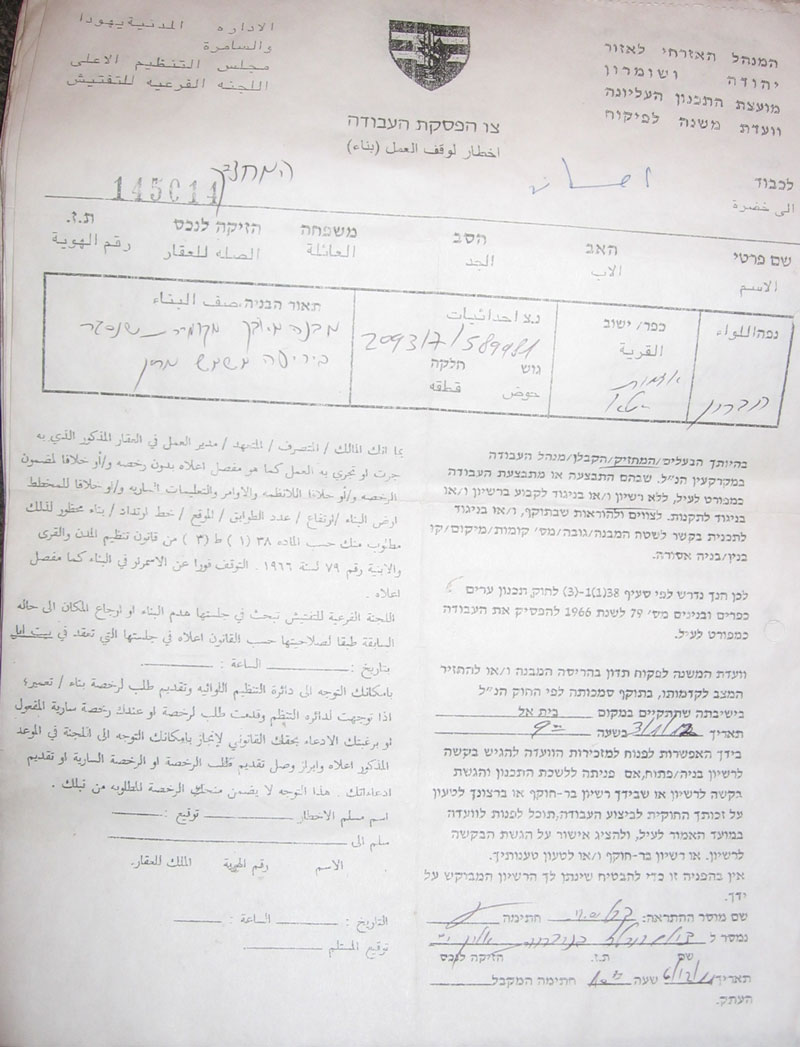 המנהל האזרחי לאזור
יהודה ושומרון
מועצת התכנון העליונה
וועדת משנה לפיקוח
الاداره المدنية يهودا
والسامرة
مجلس التنظيم الاعلى
اللجنه الفرعيه للتفتيش
צו הפסקת העבודה
اخطار لوقف العمل (بناء)
לכבוד
الى حضرة
המחזיק
145014
שם פרטי האב הסב משפחה הזיקה לנכס ת.ז.
الاسم الاب الجد العائلة الصله للعقار رقم الهوية
נפה/אללוاء
חברון
כפר/ישוב
القرية
אדמות
יטא
נצ احداثيات
209317/589981
גוש חלקה
حوض قطقه
תאור הבניה, صف البناء
בהיותך הבעלים/המחזיק/הקבלן/מנהל העבודה
במקרקעין הנ"ל. שבהם התבצעה או מתבצעת העבודה
כמפורט לעיל, ללא רשיון ו/או בניגוד לקבוע ברשיון ו/או
בניגוד לתקנות. לצווים ולהוראות שבתוקף, ו/או בניגוד
לתכנית בקשר לשטח המבנה/גובה/מס' קומות/מיקום/קו
בנין/בניה אסורה.
לכן הנך נדרש לפי סעיף 38(1)(ד)-(3) לחוק, תכנון ערים
כפרים ובנינים מס' 79 לשנת 1966 להפסיק את העבודה
כמפורט לעיל.
וועדת המשנה לפקוח תדון בהריסה המבנה ו/או להחזיר
המצב לקדמותו, בתוקף סמכותה לפי החוק הנ"ל
בישיבתה שתתקיים במקום בית אל
תאריך 3/1/12 בשעה
בידך האפשרות לפנות למזכירות הוועדה להגיש בקשה
לרשיון בניה/פתוח, אם פניתה ללשכת התכנון והגשת
בקשה לרשיון או שבידך רשיון בר-חוקף או ברצונך לטעון
על זכותך החוקית לביצוע העבודה, תוכל לפנות לוועדה
במועד האמור לעיל, ולהציג אישור על הגשת הבקשה
לרשיון. או רשיון בר-חוקף ו/או לטעון טענותיך.
אין בהפניה זו כדי להבטיח שינתן לך הרשיון המבוקש על
ידך.
שם מוסר ההתראה: חתימה
נמסר ל
שם ת.ז. הזיקה לנכס
תאריך שעה חתימה המקבל
העתק.
بما انك المالك / المتصرف / المتعهد / مدير العمل في العقار المذكور الذي به
جرت او تجري به العمل كما هو مفصل اعلاه بدون رخصه و/أو خلافا لمضمون
الرخصه و/أو خلافا اللانظمه والاوامر والتعليمات الساريه و/او خلافا للمخطط
ارض البناء /ارتفاع / عدد الطوابق / الموقع / خط ارتداد / بناء محظور لذلك
مطلوب منك حسب الماده ٣٨ (١) ط (٣) من قانون تنظيم المدن والقرى
والابنية رقم ٧٩ لسنة ١٩٦٦. التوقف فورا عن الاستمرار في البناء كما مفصل
اعلاه.
اللجنه الفرعية للتفتيش تبحث في جلستها هدم البناء او ارجاع المكان الى حاله
السابقة طبقا لصلاحيتها حسب القانون اعلاه في جلستها التي تعقد في بيت ايل
بتاريخ: الساعة:
بامكانك التوجه الى دائرة التنظيم اللوائيه وتقديم طلب لرخصة بناء / تعمير؛
اذا توجهت لدائره التنظيم وقدمت طلب لرخصة او عندك رخصة سارية المفعول
او برغبتك الادعاء بحقك القانوني لإنجاز بامكانك التوجه الى اللجنة في الموعد
المذكور اعلاه وابراز وصل تقديم طلب الرخصة او الرخصة السارية او تقديم
ادعاءاتك. هذا التوجه لا يضمن منحك الرخصة المطلوبه من قبلك.
اسم مسلم الاخطار توقيع:
سلم الى
الاسم رقم الهوية المالك للعقار.
التاريخ: الساعة:
توقيع المستلم